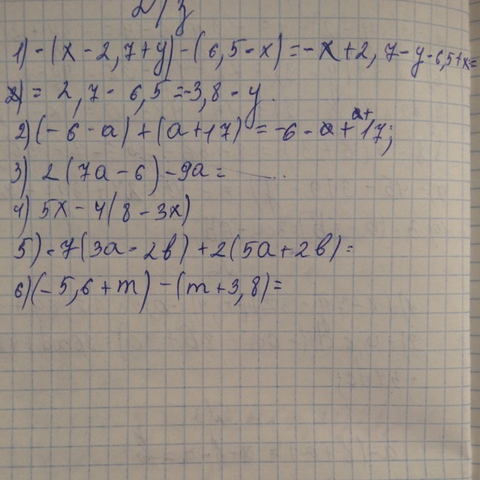 Д/з
1) -(x - 2,7+y) - (6,5-x) = -x+2,7-y-6,5+x=
= 2,7 - 6,5 = -3,8 - y.
2) (-6-a) + (a+17) = -6 - a + a + 17;
3) 2(7a-6) - 9a = ...
4) 5x - 4(8-3x)
5) -7(3a-2b) + 2(5a+2b) =
6) (-5,6+m) - (m+3,8) =